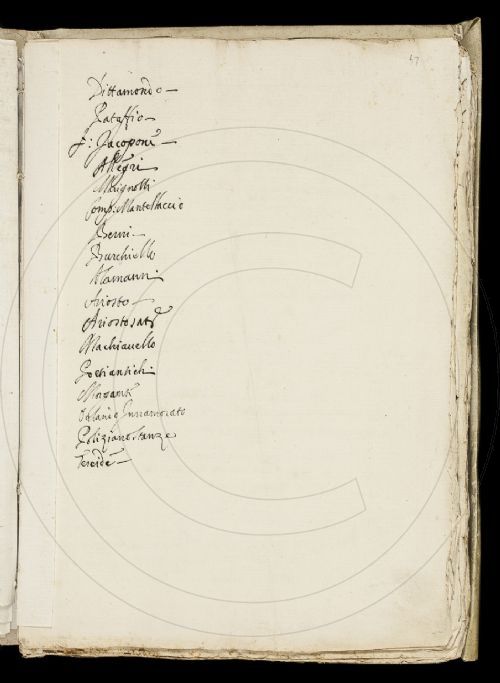 47
Dittamondo –
Pataffio –
f: Jacopone –
Allegri
Mauignotti
Comp: Mantellaccio
Berni –
Burchiello
Alamanni
Ariosto –
Ariosto sat
Machiauello
Poeti antichi
Morgante
Orlando Innamorato
Poliziano stanze
Teseide –